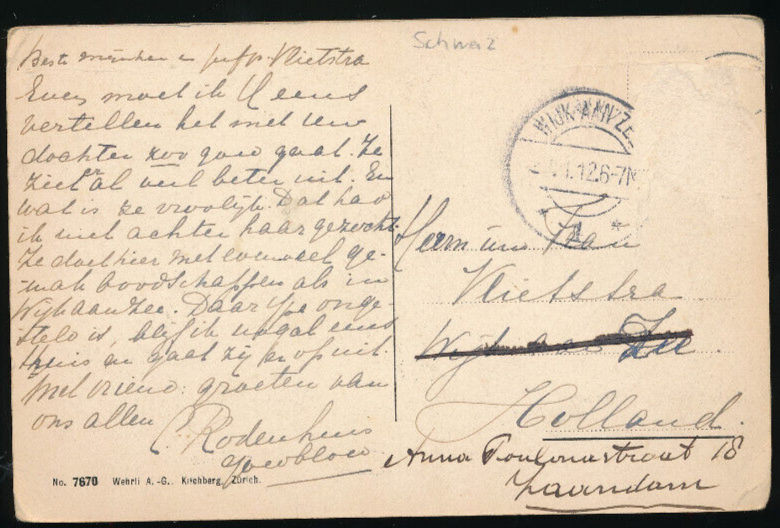 Schweiz
Beste mijnheer en juffr. Vlietstra
Even moet ik U eens
vertellen het met uw
dochter zoo goed gaat. Ze
ziet er al veel beter uit. En
wat is ze vroolijk. Dat had
ik niet achter haar gezocht.
Ze doet hier met evenveel ge-
mak boodschappen als in
Wijk aan Zee. Daar onge
steld is, blijf ik nogal eens
thuis en gaat zij er op uit.
Met vriend. groeten van
ons allen
Rodenhuis
WIJK-AAN-ZE
.12.6-7N
1
Herrn und Frau
Vlietstra
Wijk aan Zee.
Holland.
Anna Paulownastraat 18
Zaandam
No. 7670 Wehrli A.-G. Kilchberg, Zürich.